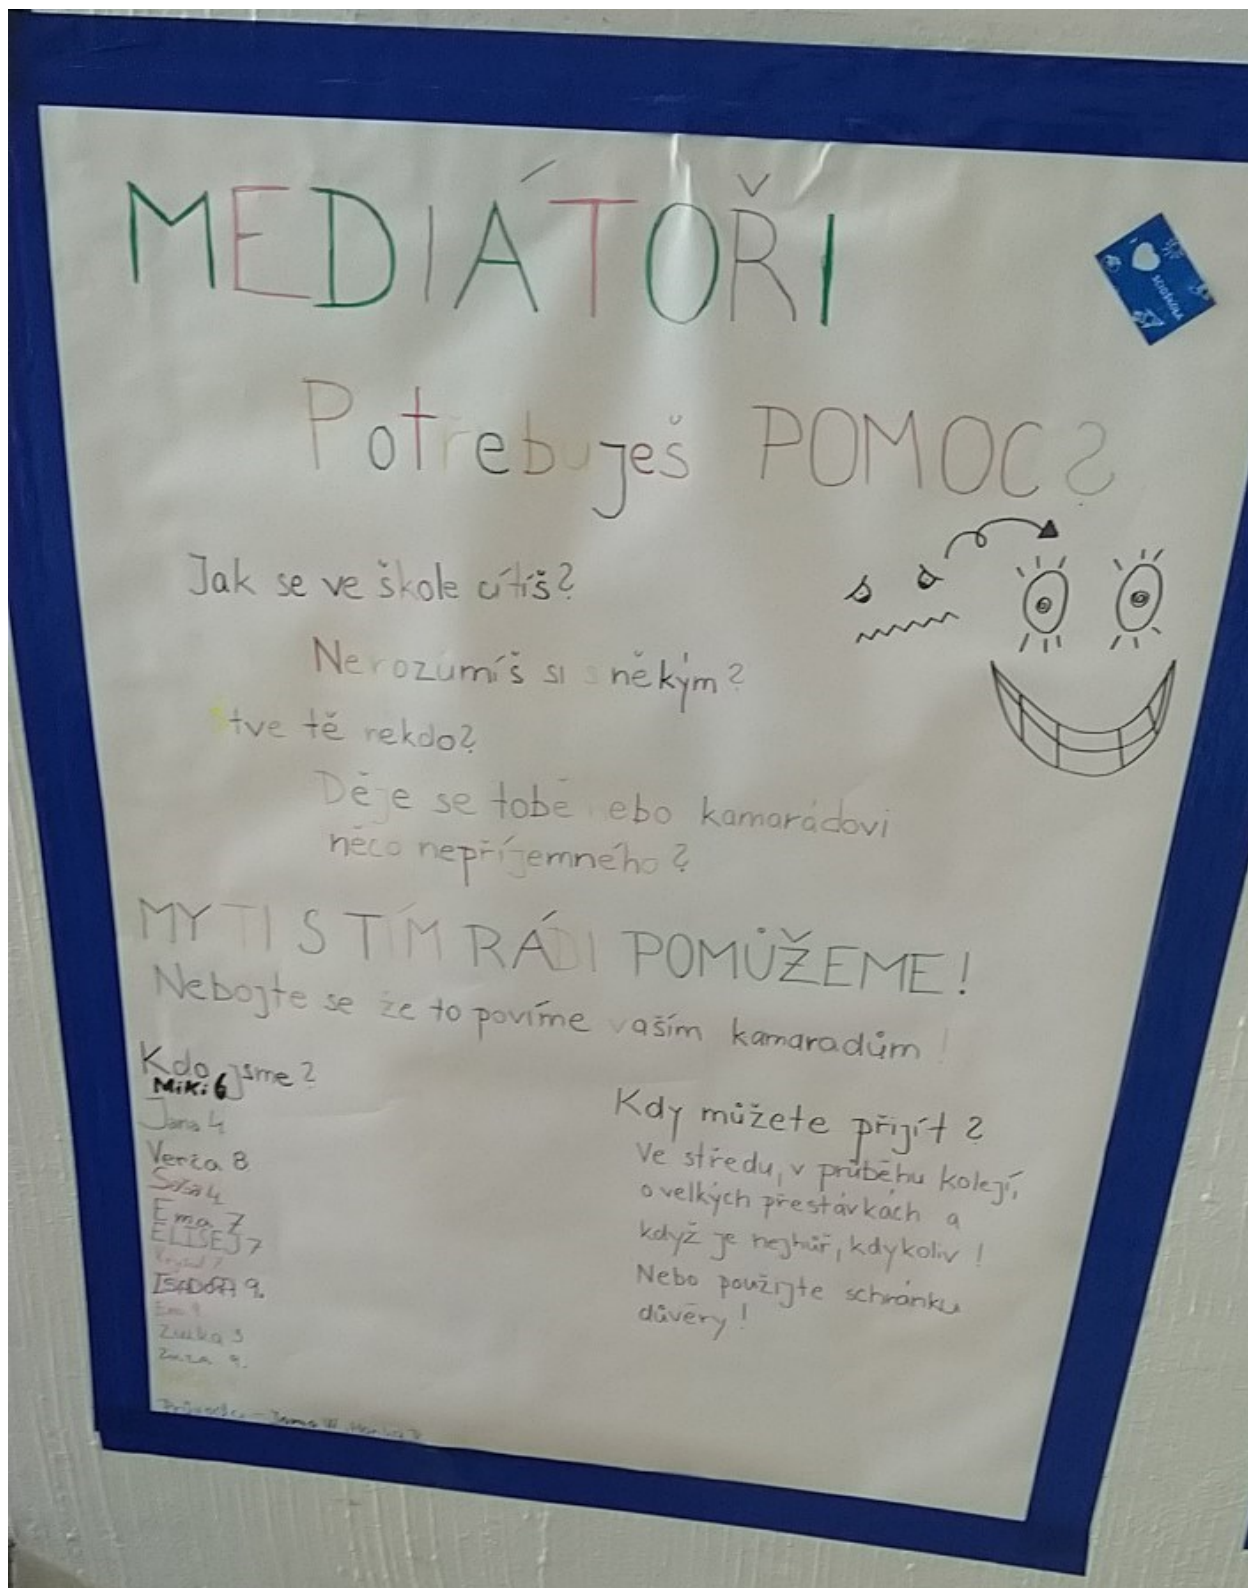 MEDIÁTOŘI
SCIOŠKOLA
Potřebuješ POMOC?
Jak se ve škole cítíš?
Nerozumíš si s někým?
Štve tě někdo?
Děje se tobě nebo kamarádovi
něco nepříjemného?
MY TI S TÍM RÁDI POMŮŽEME!
Nebojte se že to povíme vaším kamaradům!
Kdo jsme?
MiKi 6
Jana 4
Verča 8
Ema 7
ELISEJ 7
ISADORA 9.
Ema 9
Zuzka 3
Zuza 9.
Kdy můžete přijít?
Ve středu, v průběhu kolejí,
o velkých přestávkách a
když je nejhůř, kdykoliv!
Nebo použijte schránku
důvěry!